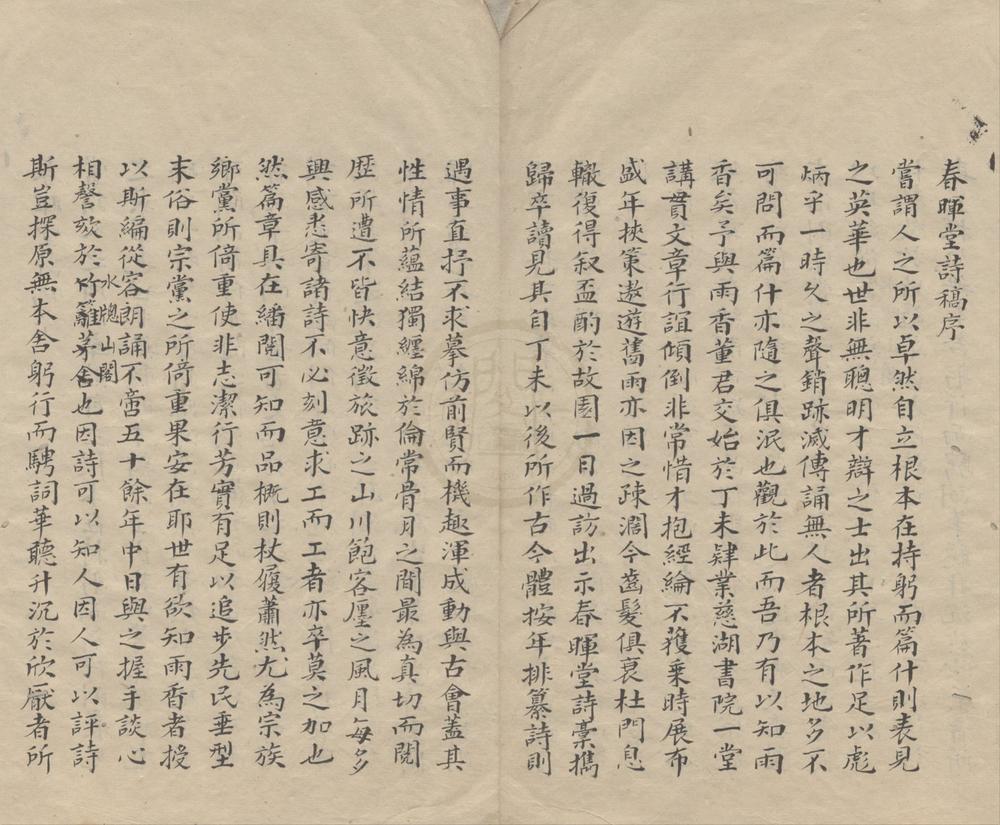 春暉堂詩稿序
嘗謂人之所以卓然自立根本在持躬而篇什則表見
之英華也世非無聰明才辯之士出其所著作足以彪
炳乎一時久之聲銷跡滅傳誦無人者根本之地多不
可問而篇什亦隨之俱泯也觀於此而吾乃有以知雨
香矣予與雨香董君交始於丁未肄業慈湖書院一堂
講貫文章行誼傾倒非常惜才抱經綸不獲乗時展布
盛年挾策遨遊舊雨亦因之疎濶今齒髮俱衰杜門息
轍復得叙盃酌於故園一日過訪出示春暉堂詩稾攜
歸卒讀見其自丁未以後所作古今體按年排纂詩則
遇事直抒不求摹仿前賢而機趣渾成動與古會蓋其
性情所蘊結獨纏綿於倫常骨月之間最為真切而閱
歷所遭不皆快意徵旅跡之山川飽客廛之風月每多
興感悉寄諸詩不必刻意求工而工者亦卒莫之加也
然篇章具在繙閱可知而品概則杖履蕭然尤為宗族
鄉黨所倚重使非志潔行芳實有足以追步先民垂型
末俗則宗黨之所倚重果安在耶世有欲知雨香者授
以斯編從容朗誦不啻五十餘年中日與之握手談心
相謦欬於竹籬茅舍也因詩可以知人因人可以評詩
水牕山閣
斯豈探原無本舍躬行而騁詞華聽升沉於欣厭者所